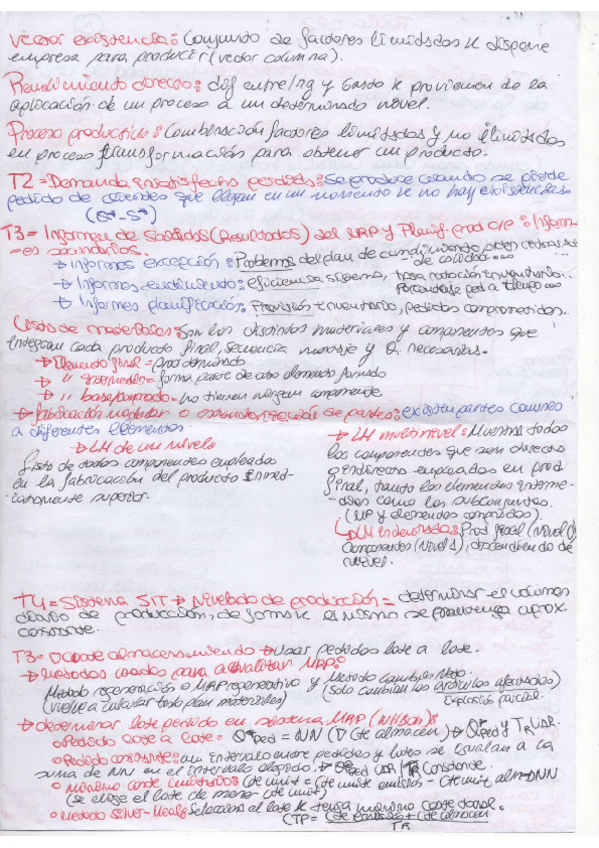 Vector existencia: Conjunto de factores limitados k dispone
empresa para producir (vector columna).
Rendimiento directo: dif entre Ing y Gasto k provienen de la
aplicación de un proceso a un determinado nivel.
Proceso productivo: Combinación factores limitados y no ilimitados
en proceso transformación para obtener un producto.
T2 = Demanda insatisfecha perdida: Se produce cuando se pierde
pedido de clientes que llegan en un momento k no hay existencias.
(S*-S*)
T3 = Informes de Salidas (Resultados) del MRP y Planif. prod CP: Inform-
es secundarios.
→ Informes excepción: Problemas del plan de
→ Informes rendimiento: eficiencia sistema, tasa rotación inventario..
Porcentaje ped a tiempo...
→ Informes planificación: Previsión inventario, pedidos comprometidos.
Lista de materiales: Son los distintos materiales y componentes que
integran cada producto final, secuencia montaje y Q. necesarias.
→ Elemento final = prod terminado
→ " intermedio = forma parte de otro elemento
→ " base/comprado = no tienen ningún componente
→ Fabricación modular o de partes: existen partes comunes
a diferentes elementos.
→ LM de un nivel:
Lista de todos componentes empleados
en la fabricación del producto inmed-
iatamente superior.
→ LM multinivel: Muestra todos
los componentes que sean directos
o indirectos empleados en prod
final, tanto los elementos interme-
dios como los subconjuntos.
(MP y elementos comprados).
↳ LM indentada: Prod final (nivel 0)
Componentes (Nivel 1), descendiendo de
nivel.
T4 = Sistema SIT → Nivelado de producción = determinar el volumen
diario de producción, de forma k el mismo se mantenga aprox.
constante.
T3 = ∇ coste almacenamiento → Usar pedidos lote a lote.
→ Métodos usados para MRP:
Método regeneración o MRP regenerativo y Método Cambio Neto.
(vuelve a calcular todo plan materiales) (solo cambian los artículos afectados)
Explosión parcial.
→ determinar lote pedido en sistema MRP (Wilson):
• Pedido lote a lote = Q*ped = NN (∇ Cte almacen) → Q*ped y TR VAR.
• Pedido constante: un intervalo entre pedidos y lotes se igualan a la
suma de NN en el intervalo elegido. → Q*ped VAR / TR Constante.
• Mínimo coste unitario: Cte unit = Cte unit emisión - Cte unit alm → NN
(se elige el lote de menor cte unit)
• Método Silver-Meal: Selecciona el lote k tenga mínimo coste total.
CTP = Cte emisión + Cte almacen
TR